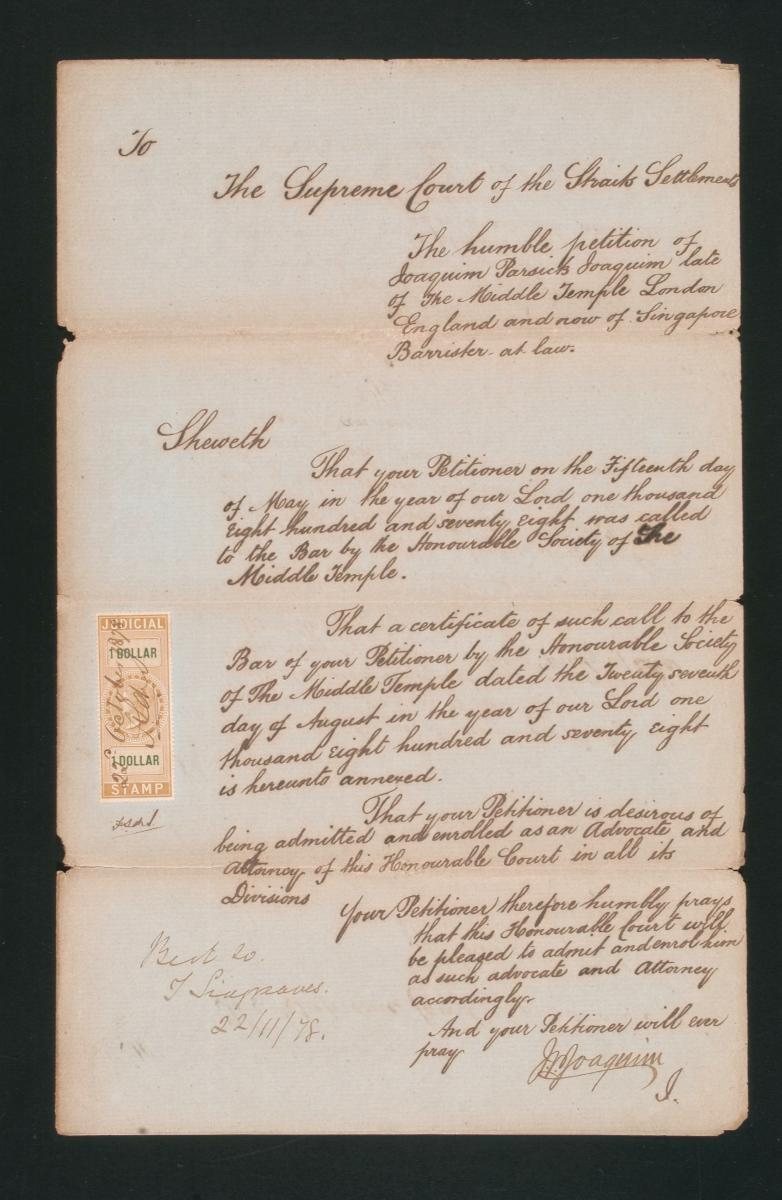 To
The Supreme Court of the Straits Settlements
The humble petition of
Joaquim Parsick Joaquim late
of The Middle Temple London
England and now of Singapore
Barrister-at law.
Sheweth
That your Petitioner on the Fifteenth day
of May in the year of our Lord one thousand
Eight hundred and seventy Eight was called
to the Bar by the Honourable Society of The
Middle Temple.
That a certificate of such call to the
Bar of your Petitioner by the Honourable Society
of The Middle Temple dated the Twenty seventh
day of August in the year of our Lord one
thousand Eight hundred and seventy Eight
is hereunto annexed.
JUDICIAL
1 DOLLAR
October
1 DOLLAR
STAMP
That your Petitioner is desirous of
being admitted and enrolled as an Advocate and
Attorney of this Honourable Court in all its
Divisions
Your Petitioner therefore humbly prays
that this Honourable Court will
be pleased to admit and enrol him
as such advocate and Attorney
accordingly.
And your Petitioner will ever
pray
J.P. Joaquim
J.
22/11/78.